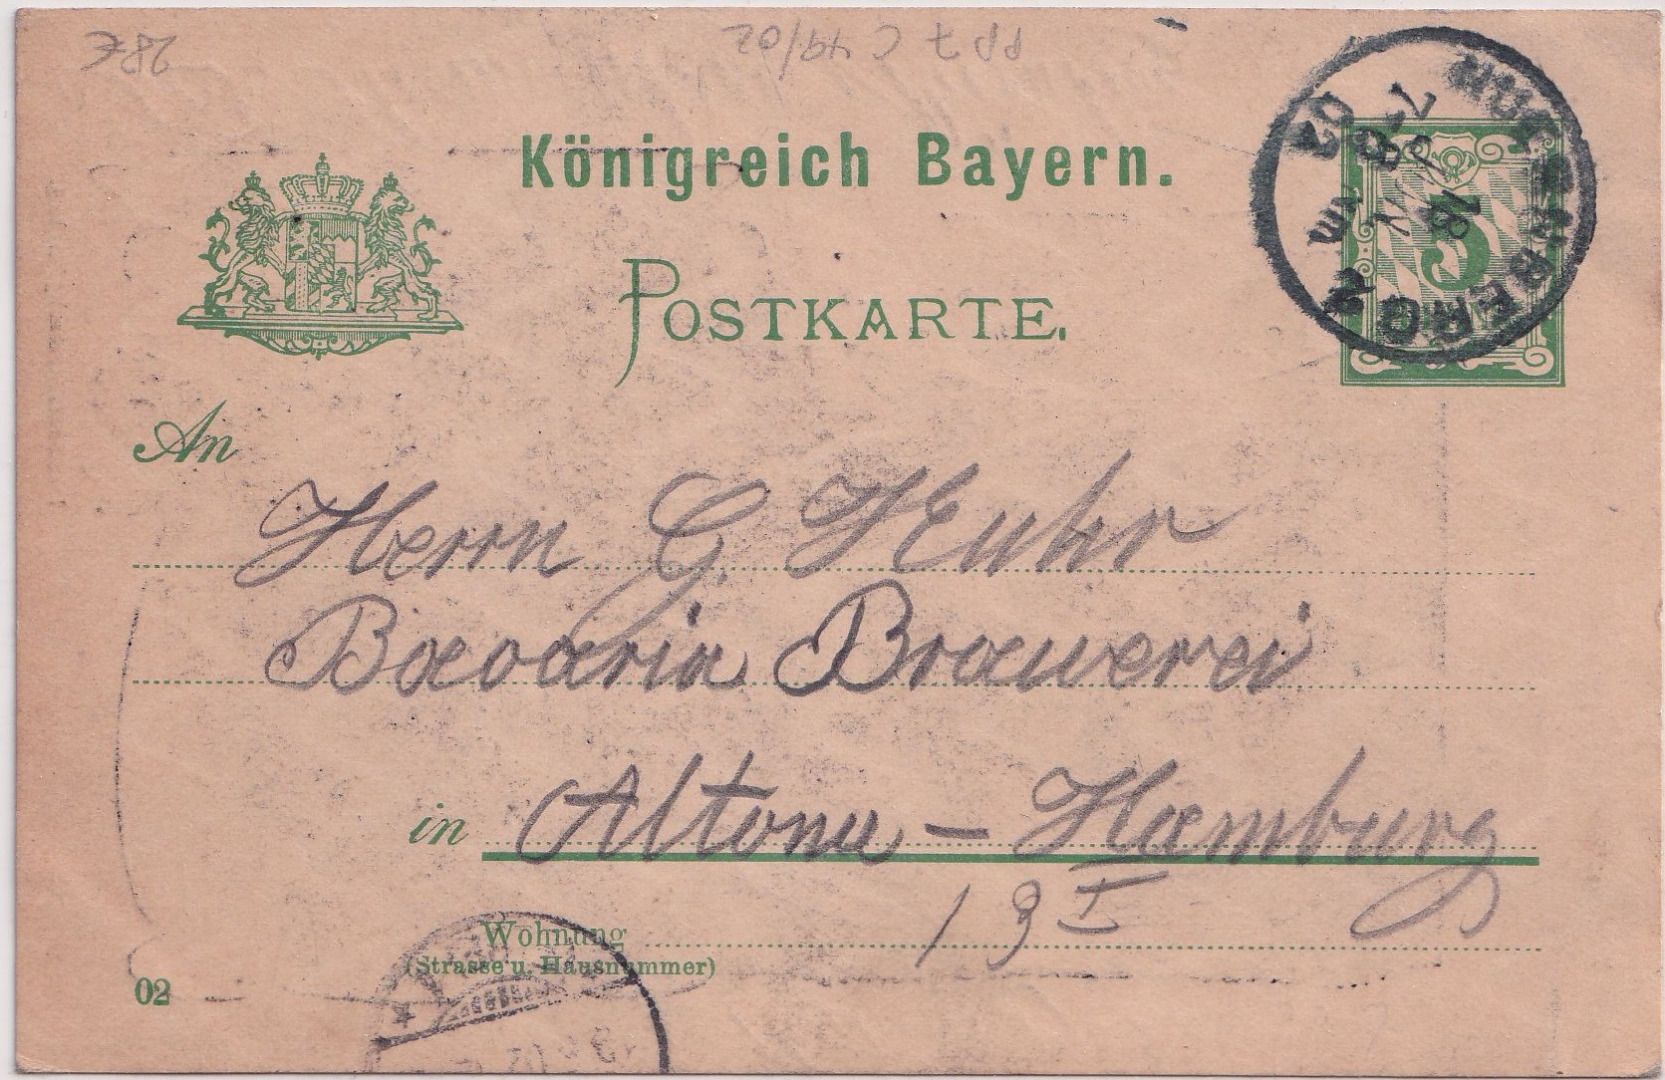 28€
PP7 C 49/02
Königreich Bayern.
POSTKARTE.
5
NUERNBERG 2
18
An
Herrn G. Kuhr
Bavaria Brauerei
in Altona – Hamburg
13 I
Wohnung
(Strasse u. Hausnummer)
02